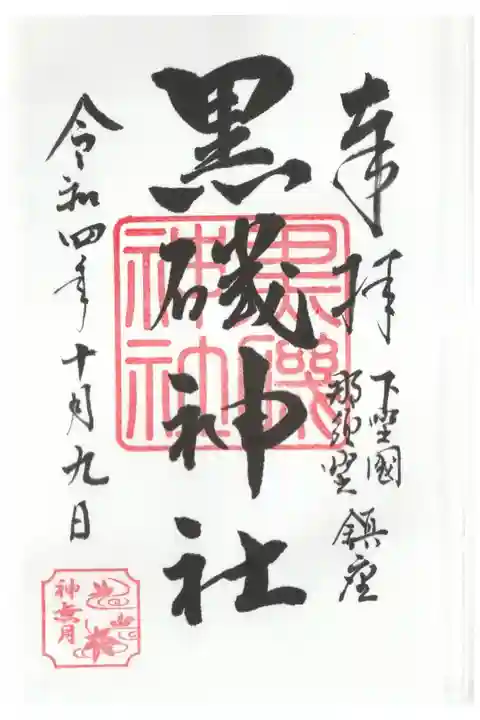 奉拝
下埜國
那須埜
鎮座
黒磯神社
黒磯神社
令和四年十月九日
神無月